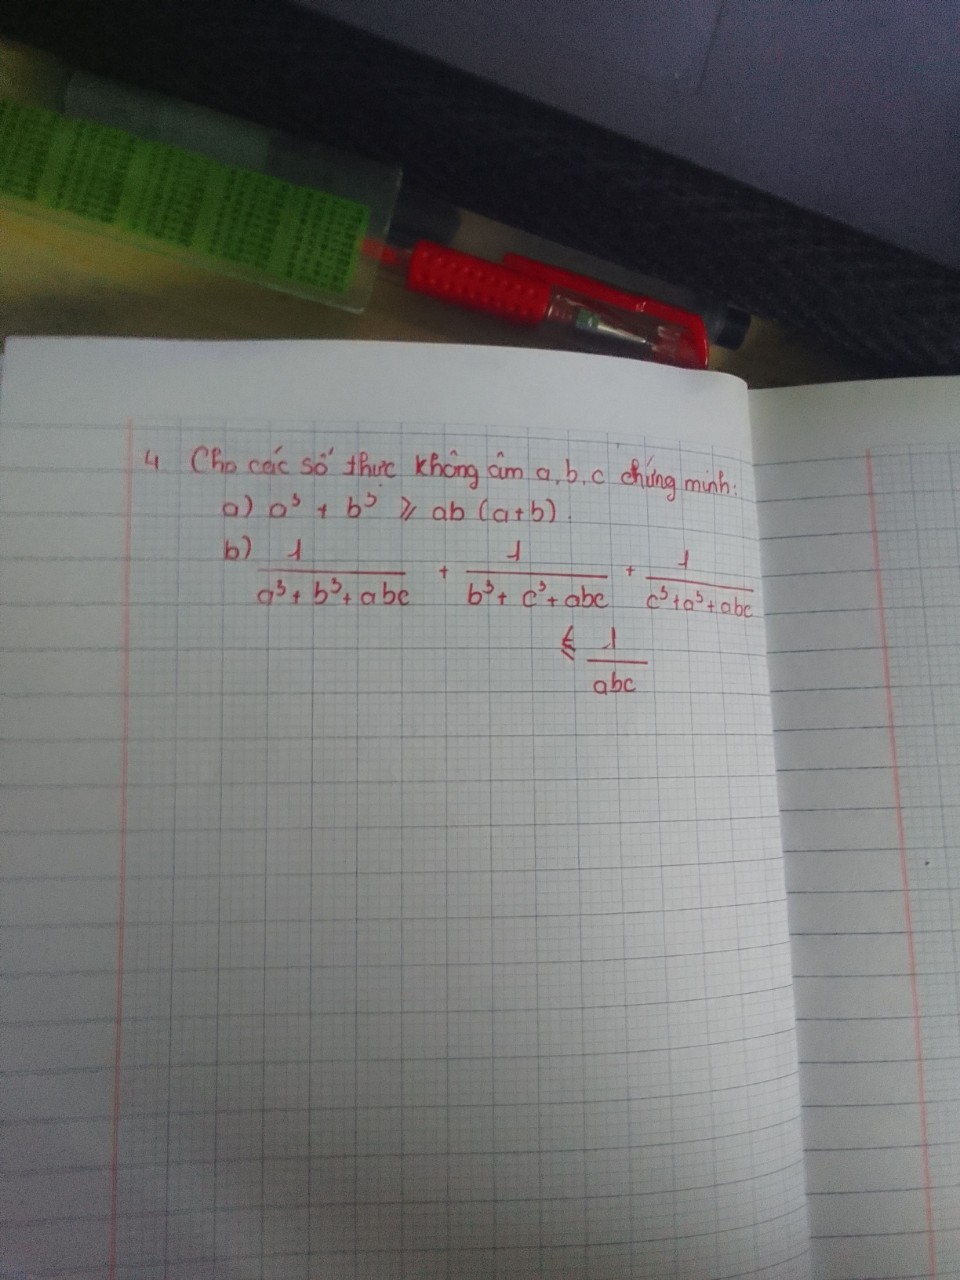 4 Cho các số thực không âm a, b, c chứng minh:
a) a³ + b³ ⩾ ab (a+b).
b) 1/(a³ + b³ + abc) + 1/(b³ + c³ + abc) + 1/(c³ + a³ + abc)
⩽ 1/abc